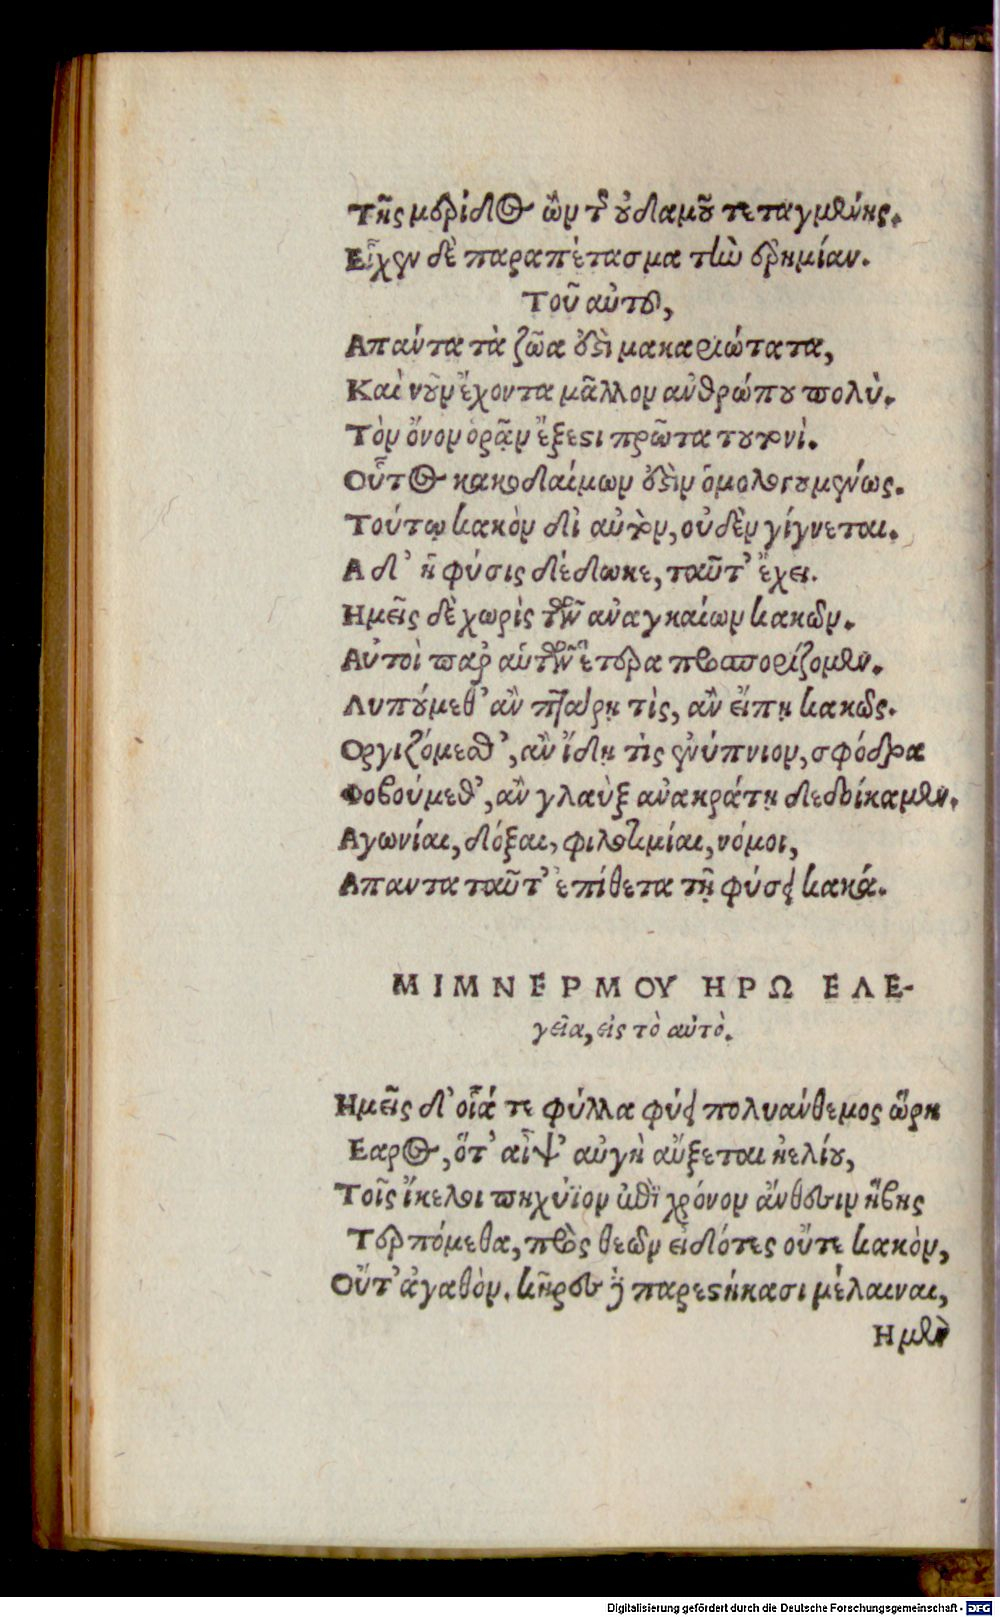 Τῆς μερίδος ὢν τῆς οὐδαμοῦ τεταγμένης.
Εἶχεν δὲ παραπέτασμα τὴν ἐρημίαν.
Τοῦ αὐτοῦ,
Απαντα τὰ ζῶα ὀδὲι μακαριώτατα,
Καὶ νοῦν ἔχοντα μᾶλλον ἀνθρώπου πολὺ.
Τὸν ὄνον ὁρᾷν ἔξεστι πρῶτα τουτονὶ.
Οὗτος κακοδαίμων ὀδὲιν ὁμολογουμένως.
Τούτῳ κακὸν δι αὑτὸν, οὐδὲν γίγνεται.
Α δ' ἡ φύσις δέδωκε, ταῦτ' ἔχει.
Ημεῖς δὲ χωρὶς τῶν ἀναγκαίων κακῶν.
Αὐτοὶ παρ αὑτῶν ἕτερα προσπορίζομεν.
Λυπούμεθ' ἂν πταρῃ τὶς, ἂν εἴπῃ κακῶς.
Οργιζόμεσθ', ἂν ἴδῃ τὶς ἐνύπνιον, σφόδρα
Φοβούμεθ', ἂν γλαὺξ ἀνακράτῃ δεδοίκαμεν.
Αγωνίαι, δόξαι, φιλοτιμίαι, νόμοι,
Απαντα ταῦτ' ἐπίθετα τῇ φύσει κακά.
ΜΙΜΝΕΡΜΟΥ ΗΡΩ ΕΛΕ-
γεῖα, εἰς τὸ αὐτὸ.
Ημεῖς δ' οἷά τε φύλλα φύει πολυάνθεμος ὥρη
Εαρος, ὅτ' αἶψ' αὐγὴ αὔξεται ἠελίου,
Τοῖς ἴκελοι πηχύϊον ἐπὶ χρόνον ἄνθεσιν ἥβης
Τερπόμεθα, πρὸς θεῶν εἰδότες οὔτε κακὸν,
Οὔτ' ἀγαθὸν. κῆρες δὲ παρεστήκασι μέλαιναι,
Ημὲν
Digitalisierung gefördert durch die Deutsche Forschungsgemeinschaft - DFG